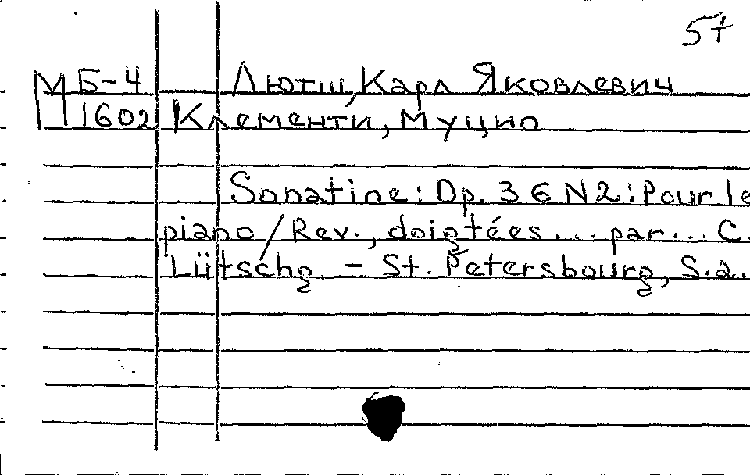 57
М Б-4 Лютш, Карл Яковлевич
1602 Клементи, Муцио
Sonatine: Op. 36 N2: Pour le
piano / Rev., doigtées... par... C.
Lütschg. - St. Petersbourg, S.a.